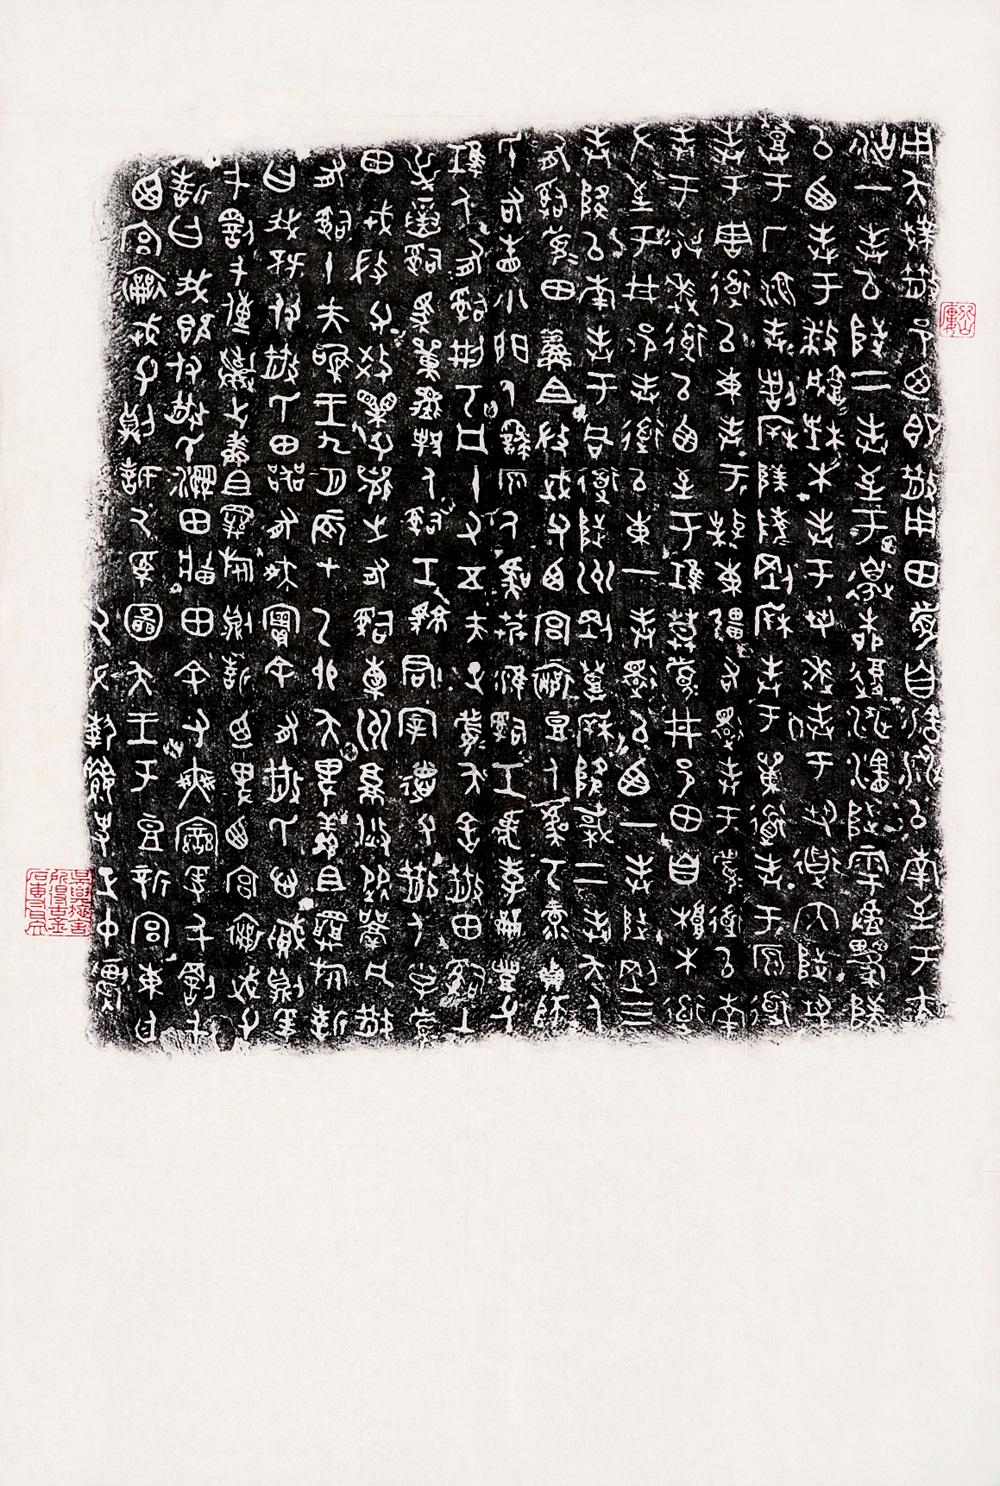 用夨𢦏散邑乃即散用田眉自瀗涉以南至于大
沽一奉以陟二奉至于邊柳復涉瀗陟雩𢾅𨤲𨻰
以西奉于播城楮木奉于芻逨奉于芻道內陟芻
登于厂湶奉諸𣏟𨻰陵剛𣏟奉于𦥑道奉于原道
奉于周道以東奉于𩫨東疆右還奉于眉道以南
奉于𥻘逨道以西至于堆莫眉井邑田自桹木道
左至于井邑奉道以東一奉還以西一奉陟剛三
奉降以南奉于同道陟州剛登𣏟降棫二奉夨人
有司眉田鮮且微武父西宮襄豆人虞丂彔貞師
氏右眚小門人繇原人虞艿淮司工虎孝龠豐父
堆人有司刑丂凡十又五夫正眉夨舍散田司土
逆寅司馬單𨛭𨛭人司工駷君宰德父散人小子眉
田戎微父效果父襄之有司橐州就焂從𩰬凡散
有司十夫唯王九月辰才乙卯夨卑鮮且𢍰旅誓
曰我既付散氏田器有爽實余有散氏心賊則爰
千罰千傳棄之鮮且𢍰旅則誓乃卑西宮襄武父
誓曰我既付散氏濕田牆田余又爽變爰千罰千
西宮襄武父則誓厥受圖夨王于豆新宮東廷
厥左執要史正中農